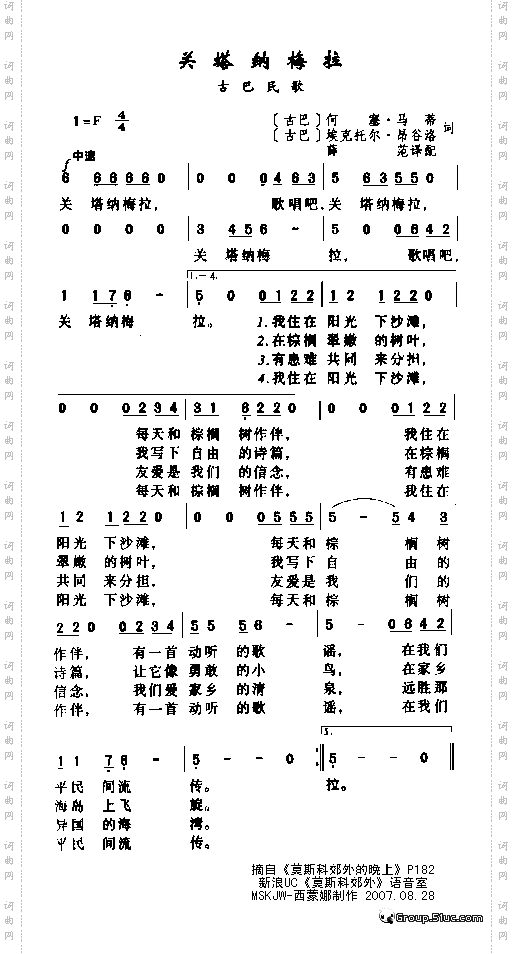 关塔纳梅拉
古巴民歌
1=F 4/4
〔古巴〕何塞·马蒂
〔古巴〕埃克托尔·昂谷洛 词
薛范译配
中速
6 66660 | 0 0 0463 | 5 63550 |
关 塔纳梅拉, 歌唱吧,关 塔纳梅拉,
0 0 0 0 | 3 456 - | 5 0 0642 |
关 塔纳梅 拉, 歌唱吧,
1.-4.
1 176 - | 5 0 0122 | 12 1220 |
关 塔纳梅 拉。 1.我住在 阳光 下沙滩,
2.在棕榈 翠嫩 的树叶,
3.有患难 共同 来分担,
4.我住在 阳光 下沙滩,
0 0 0234 | 31 6220 | 0 0 0122 |
每天和 棕榈 树作伴, 我住在
我写下 自由 的诗篇, 在棕榈
友爱是 我们 的信念, 有患难
每天和 棕榈 树作伴, 我住在
12 1220 | 0 0 0555 | 5 - 54 3 |
阳光 下沙滩, 每天和 棕 榈 树
翠嫩 的树叶, 我写下 自 由 的
共同 来分担, 友爱是 我 们 的
阳光 下沙滩, 每天和 棕 榈 树
220 0234 | 55 56 - | 5 - 0642 |
作伴, 有一首 动听 的歌 谣, 在我们
诗篇, 让它像 勇敢 的小 鸟, 在家乡
信念, 我们爱 家乡 的清 泉, 远胜那
作伴, 有一首 动听 的歌 谣, 在我们
5.
11 76 - | 5 - - 0 :| 5 - - 0 |
平民 间流 传。 拉。
海岛 上飞 旋。
异国 的海 湾。
平民 间流 传。
摘自《莫斯科郊外的晚上》P182
新浪UC《莫斯科郊外》语音室
MSKJW-西蒙娜制作 2007.08.28
Group.51uc.com
词曲网